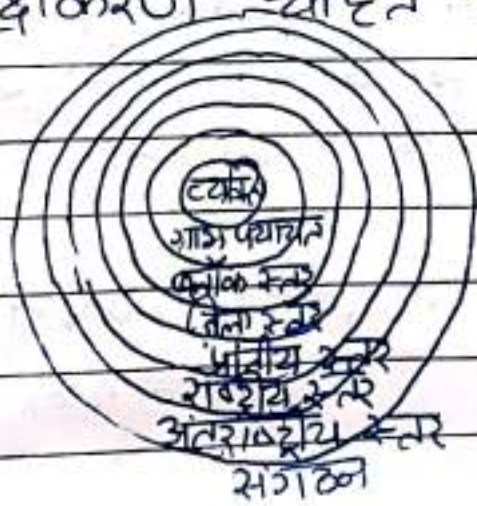 चाहिए
व्यक्ति
ग्राम पंचायत
ब्लॉक स्तर
जिला स्तर
प्रांतीय स्तर
राष्ट्रीय स्तर
अंतराष्ट्रीय स्तर
संगठन